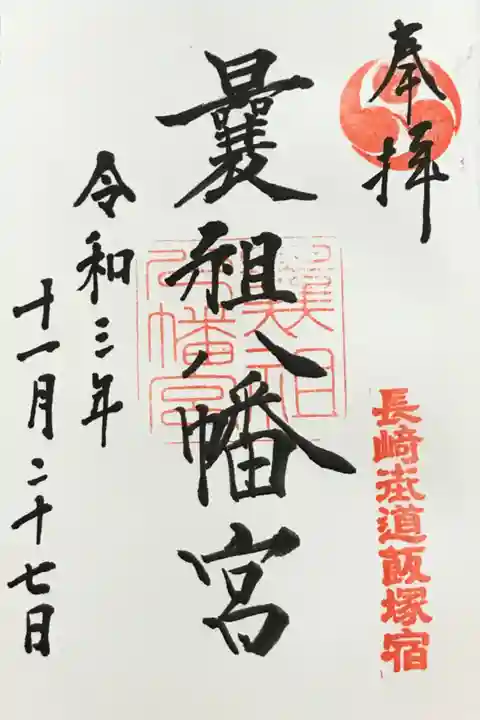 奉拝
長崎街道飯塚宿
曩祖八幡宮
曩祖
八幡宮
令和三年
十一月二十七日